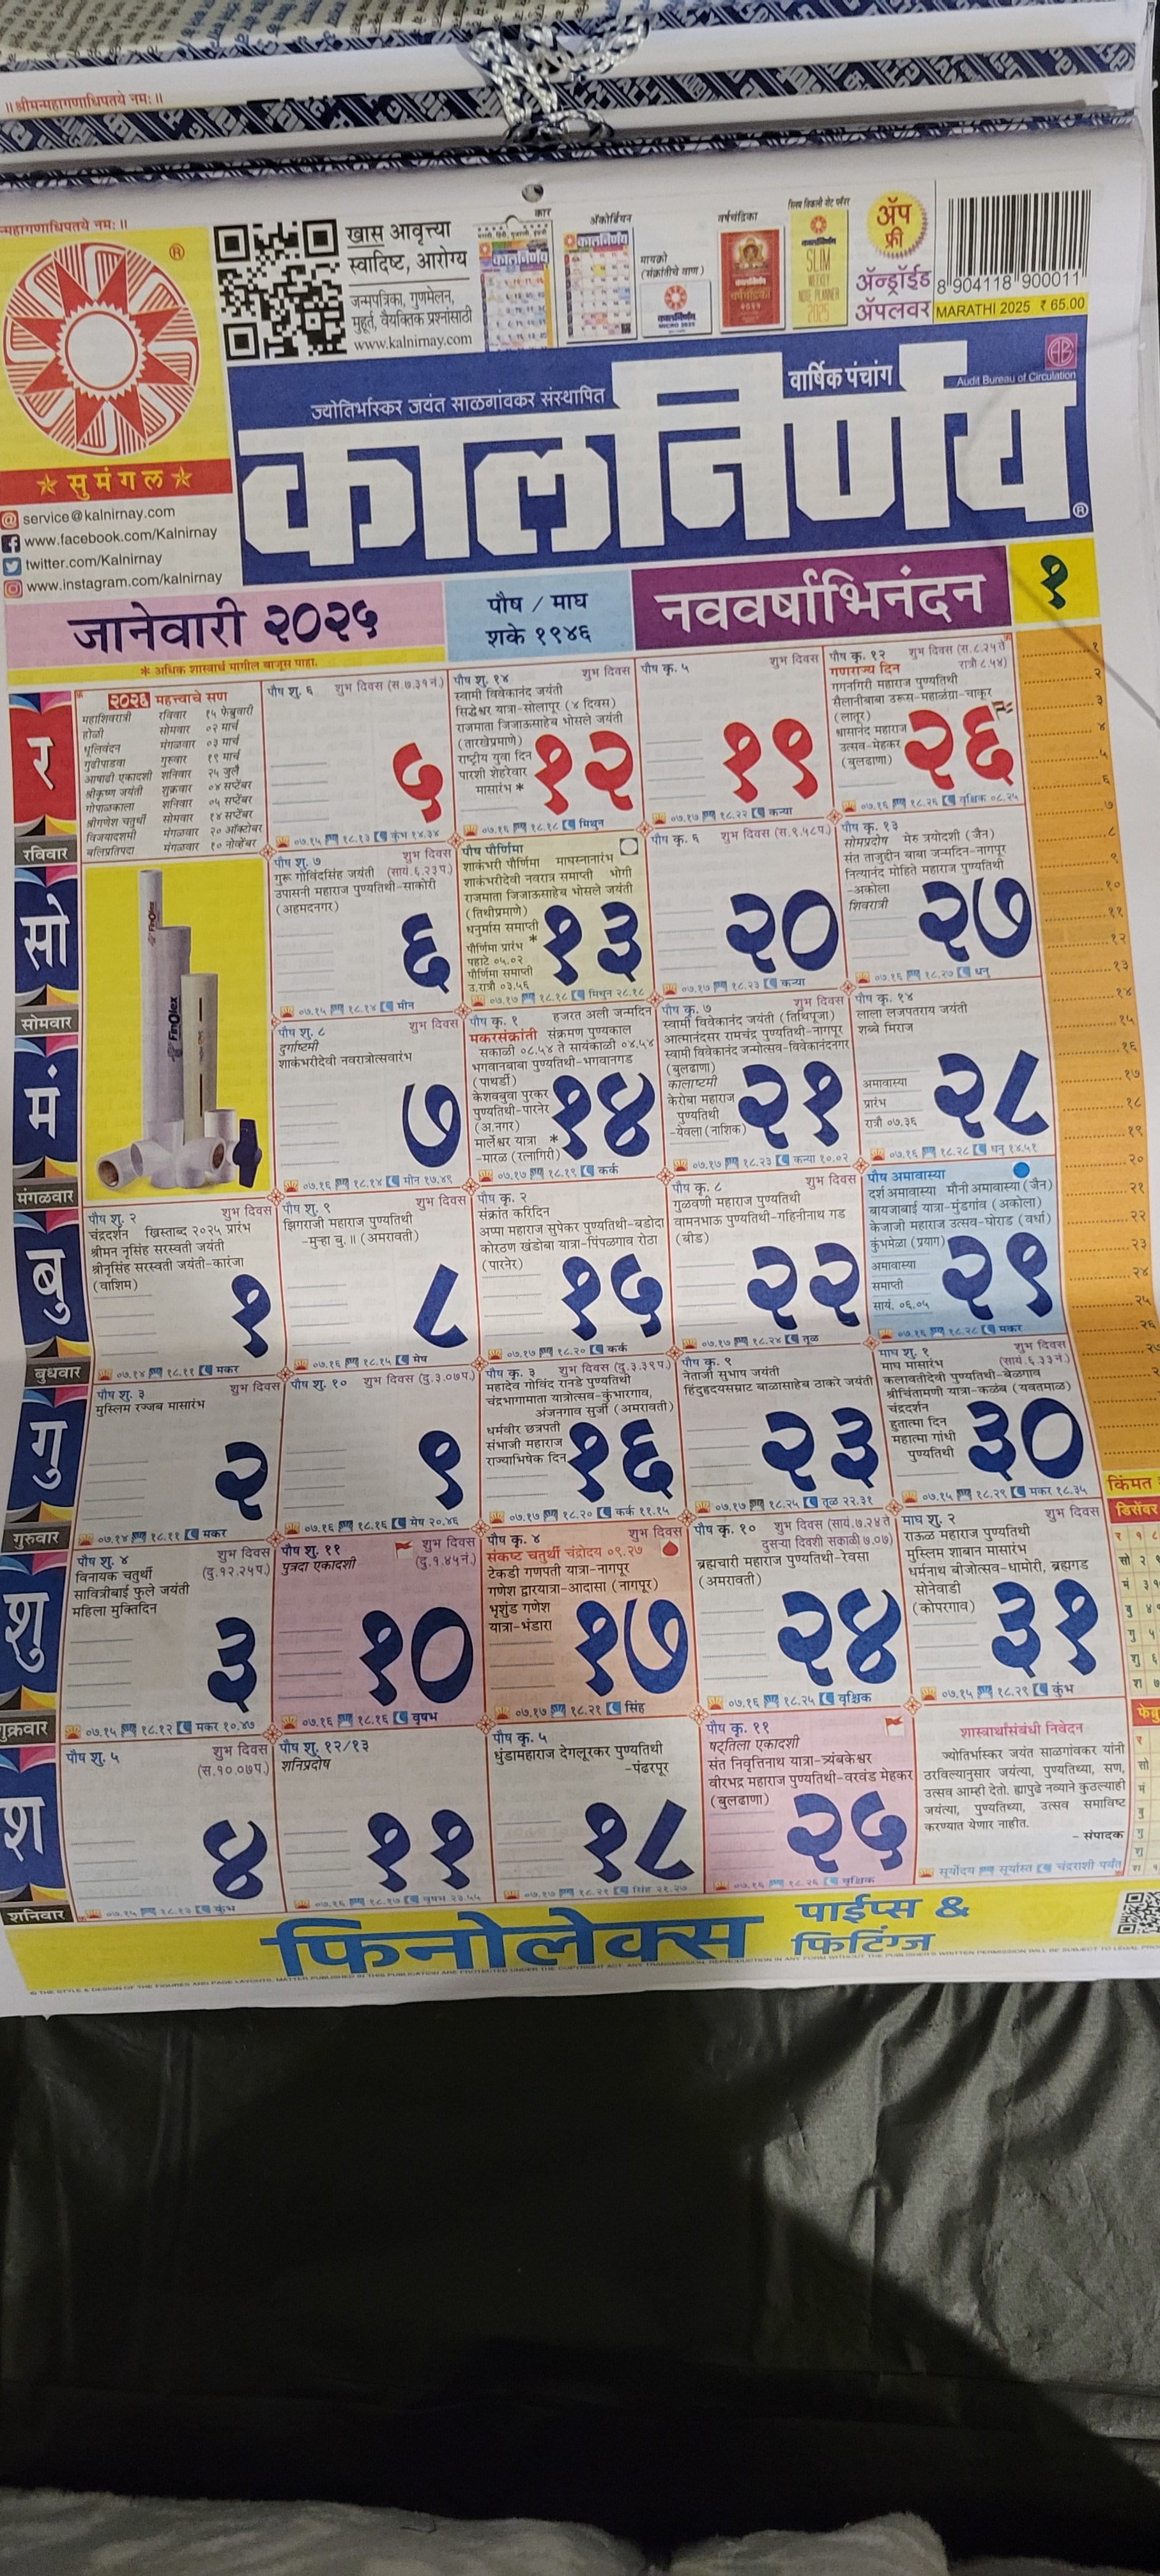 ॥ श्रीमन्महागणाधिपतये नमः ॥
खास आवृत्त्या
स्वादिष्ट, आरोग्य
जन्मपत्रिका, गुणमेलन,
मुहूर्त, वैयक्तिक प्रश्नांसाठी
www.kalnirnay.com
कार
अ‍ॅकोर्डियन
मायक्रो
(संक्रांतीचे वाण)
वर्षचंद्रिका
ॲप
फ्री
ॲन्ड्रॉईड
ॲपलवर
8 904118 900011
MARATHI 2025 ₹ 65.00
®
★ सुमंगल ★
service@kalnirnay.com
www.facebook.com/Kalnirnay
twitter.com/Kalnirnay
www.instagram.com/kalnirnay
ज्योतिर्भास्कर जयंत साळगांवकर संस्थापित
वार्षिक पंचांग
Audit Bureau of Circulation
कालनिर्णय ®
जानेवारी २०२५
पौष / माघ
शके १९४६
नववर्षाभिनंदन
१
* अधिक शास्त्रार्थ मागील बाजूस पाहा.
र
रविवार
२०२६ महत्त्वाचे सण
महाशिवरात्री रविवार १५ फेब्रुवारी
होळी सोमवार ०२ मार्च
धूलिवंदन मंगळवार ०३ मार्च
गुढीपाडवा गुरुवार १९ मार्च
आषाढी एकादशी शनिवार २५ जुलै
श्रीकृष्ण जयंती शुक्रवार ०४ सप्टेंबर
गोपाळकाला शनिवार ०५ सप्टेंबर
श्रीगणेश चतुर्थी सोमवार १४ सप्टेंबर
विजयादशमी मंगळवार २० ऑक्टोबर
बलिप्रतिपदा मंगळवार १० नोव्हेंबर
पौष शु. ६ शुभ दिवस (स.७.३१ नं.)
५
०७.१५ १८.१३ कुंभ १४.३४
पौष शु. १४ शुभ दिवस
स्वामी विवेकानंद जयंती
सिद्धेश्वर यात्रा-सोलापूर (४ दिवस)
राजमाता जिजाऊसाहेब भोसले जयंती
(तारखेप्रमाणे)
राष्ट्रीय युवा दिन
पारशी शेहरेवार
मासारंभ *
१२
०७.१६ १८.१८ मिथुन
पौष कृ. ५ शुभ दिवस
१९
०७.१७ १८.२२ कन्या
पौष कृ. १२ शुभ दिवस (स.८.२५ ते
रात्रौ ८.५४)
गणराज्य दिन
गगनगिरी महाराज पुण्यतिथी
सैलानीबाबा उरूस-महाळंग्रा-चाकूर
(लातूर)
शामानंद महाराज
उत्सव-मेहकर
(बुलढाणा)
२६
०७.१६ १८.२६ वृश्चिक ०८.२५
सो
सोमवार
FinOlex
पौष शु. ७ शुभ दिवस
गुरू गोविंदसिंह जयंती (सायं.६.२३प.)
उपासनी महाराज पुण्यतिथी-साकोरी
(अहमदनगर)
६
०७.१५ १८.१४ मीन
पौष पौर्णिमा
शाकंभरी पौर्णिमा माघस्नानारंभ
शाकंभरीदेवी नवरात्र समाप्ती भोगी
राजमाता जिजाऊसाहेब भोसले जयंती
(तिथीप्रमाणे)
धनुर्मास समाप्ती
पौर्णिमा प्रारंभ *
पहाटे ०५.०२
पौर्णिमा समाप्ती
उ.रात्री ०३.५६
१३
०७.१७ १८.१८ मिथुन २८.१८
पौष कृ. ६ शुभ दिवस (स.९.५८प.)
२०
०७.१७ १८.२३ कन्या
पौष कृ. १३
सोमप्रदोष मेरु त्रयोदशी (जैन)
संत ताजुद्दीन बाबा जन्मदिन-नागपूर
नित्यानंद मोहिते महाराज पुण्यतिथी
-अकोला
शिवरात्री
२७
०७.१६ १८.२७ धनु
मं
मंगळवार
पौष शु. ८ शुभ दिवस
दुर्गाष्टमी
शाकंभरीदेवी नवरात्रोत्सवारंभ
७
०७.१६ १८.१४ मीन १७.४९
पौष कृ. १ हजरत अली जन्मदिन
मकरसंक्रांती संक्रमण पुण्यकाल
सकाळी ०८.५४ ते सायंकाळी ०४.५४
भगवानबाबा पुण्यतिथी-भगवानगड
(पाथर्डी)
केशवबुवा पुरकर
पुण्यतिथी-पारनेर
(अ.नगर)
मार्लेश्वर यात्रा *
-मारळ (रत्नागिरी)
१४
०७.१७ १८.१९ कर्क
पौष कृ. ७ शुभ दिवस
स्वामी विवेकानंद जयंती (तिथिपूजा)
आत्मानंदसर रामचंद्र पुण्यतिथी-नागपूर
स्वामी विवेकानंद जन्मोत्सव-विवेकानंदनगर
(बुलढाणा)
कालाष्टमी
केरोबा महाराज
पुण्यतिथी
-येवला (नाशिक)
२१
०७.१७ १८.२३ कन्या १०.०२
पौष कृ. १४
लाला लजपतराय जयंती
शब्बे मिराज
अमावास्या
प्रारंभ
रात्रौ ०७.३६
२८
०७.१६ १८.२८ धनु १४.५१
बु
बुधवार
पौष शु. २ शुभ दिवस
चंद्रदर्शन ख्रिस्ताब्द २०२५ प्रारंभ
श्रीमन नृसिंह सरस्वती जयंती
श्रीनृसिंह सरस्वती जयंती-कारंजा
(वाशिम)
१
०७.१४ १८.११ मकर
पौष शु. ९ शुभ दिवस
झिंगराजी महाराज पुण्यतिथी
-मुऱ्हा बु.॥ (अमरावती)
८
०७.१६ १८.१५ मेष
पौष कृ. २
संक्रांत करिदिन
अप्पा महाराज सुपेकर पुण्यतिथी-बडोदा
कोरठण खंडोबा यात्रा-पिंपळगाव रोठा
(पारनेर)
१५
०७.१७ १८.२० कर्क
पौष कृ. ८ शुभ दिवस
गुळवणी महाराज पुण्यतिथी
वामनभाऊ पुण्यतिथी-गहिनीनाथ गड
(बीड)
२२
०७.१७ १८.२४ तूळ
पौष अमावास्या
दर्श अमावास्या मौनी अमावास्या (जैन)
बायजाबाई यात्रा-मुंडगांव (अकोला)
केजाजी महाराज उत्सव-घोराड (वर्धा)
कुंभमेळा (प्रयाग)
अमावास्या
समाप्ती
सायं. ०६.०५
२९
०७.१६ १८.२८ मकर
गु
गुरुवार
पौष शु. ३ शुभ दिवस
मुस्लिम रज्जब मासारंभ
२
०७.१४ १८.११ मकर
पौष शु. १० शुभ दिवस (दु.३.०७प.)
९
०७.१६ १८.१६ मेष २०.४६
पौष कृ. ३ शुभ दिवस (दु.३.३९प.)
महादेव गोविंद रानडे पुण्यतिथी
चंद्रभागामाता यात्रोत्सव-कुंभारगाव,
अंजनगाव सुर्जी (अमरावती)
धर्मवीर छत्रपती
संभाजी महाराज
राज्याभिषेक दिन
१६
०७.१७ १८.२० कर्क ११.१५
पौष कृ. ९
नेताजी सुभाष जयंती
हिंदुहृदयसम्राट बाळासाहेब ठाकरे जयंती
२३
०७.१७ १८.२५ तूळ २२.३१
माघ शु. १ शुभ दिवस
माघ मासारंभ (सायं.६.३३ नं.)
कलावतीदेवी पुण्यतिथी-बेळगाव
श्रीचिंतामणी यात्रा-कळंब (यवतमाळ)
चंद्रदर्शन
हुतात्मा दिन
महात्मा गांधी
पुण्यतिथी
३०
०७.१५ १८.२९ मकर १८.३५
शु
शुक्रवार
पौष शु. ४ शुभ दिवस
विनायक चतुर्थी (दु.१२.२५प.)
सावित्रीबाई फुले जयंती
महिला मुक्तिदिन
३
०७.१५ १८.१२ मकर १०.४७
पौष शु. ११ शुभ दिवस
पुत्रदा एकादशी (दु.१.४५नं.)
१०
०७.१६ १८.१६ वृषभ
पौष कृ. ४ शुभ दिवस
संकष्ट चतुर्थी चंद्रोदय ०९.२७
टेकडी गणपती यात्रा-नागपूर
गणेश द्वारयात्रा-आदासा (नागपूर)
भृशुंड गणेश
यात्रा-भंडारा
१७
०७.१७ १८.२१ सिंह
पौष कृ. १० शुभ दिवस (सायं.७.२४ ते
दुसऱ्या दिवशी सकाळी ७.०७)
ब्रह्मचारी महाराज पुण्यतिथी-रेवसा
(अमरावती)
२४
०७.१६ १८.२५ वृश्चिक
माघ शु. २ शुभ दिवस
राऊळ महाराज पुण्यतिथी
मुस्लिम शाबान मासारंभ
धर्मनाथ बीजोत्सव-धामोरी, ब्रह्मगड
सोनेवाडी
(कोपरगाव)
३१
०७.१५ १८.२९ कुंभ
श
शनिवार
पौष शु. ५ शुभ दिवस
(स.१०.०७प.)
४
०७.१५ १८.१३ कुंभ
पौष शु. १२/१३
शनिप्रदोष
११
०७.१६ १८.१७ वृषभ २३.५५
पौष कृ. ५
धुंडामहाराज देगलूरकर पुण्यतिथी
-पंढरपूर
१८
०७.१७ १८.२१ सिंह २१.२७
पौष कृ. ११
षट्‌तिला एकादशी
संत निवृत्तिनाथ यात्रा-त्र्यंबकेश्वर
वीरभद्र महाराज पुण्यतिथी-वरवंड मेहकर
(बुलढाणा)
२५
०७.१६ १८.२६ वृश्चिक
शास्त्रार्थासंबंधी निवेदन
ज्योतिर्भास्कर जयंत साळगांवकर यांनी
ठरविल्यानुसार जयंत्या, पुण्यतिथ्या, सण,
उत्सव आम्ही देतो. ह्यापुढे नव्याने कुठल्याही
जयंत्या, पुण्यतिथ्या, उत्सव समाविष्ट
करण्यात येणार नाहीत.
- संपादक
सूर्योदय सूर्यास्त चंद्रराशी पर्यंत
किंमत
डिसेंबर
फिनोलेक्स पाईप्स &
फिटिंग्ज